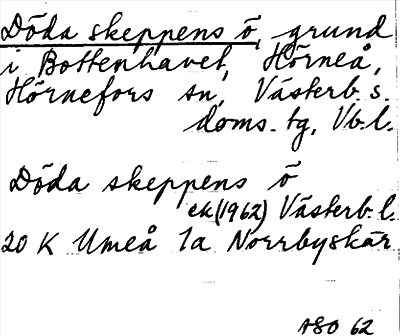 Döda skeppens ö, grund
i Bottenhavet, Hörneå,
Hörnefors sn, Västerb. s.
doms. tg, Vb. l.
Döda skeppens ö
ek (1962) Västerb. l.
20 K Umeå 1a Norrbyskär
ASO 62